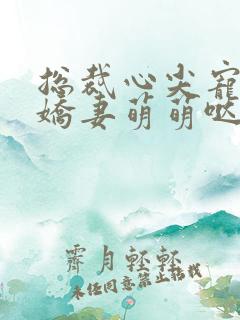 总裁心尖宠
娇妻萌萌哒
霁月轻轻
未经同意禁止转载